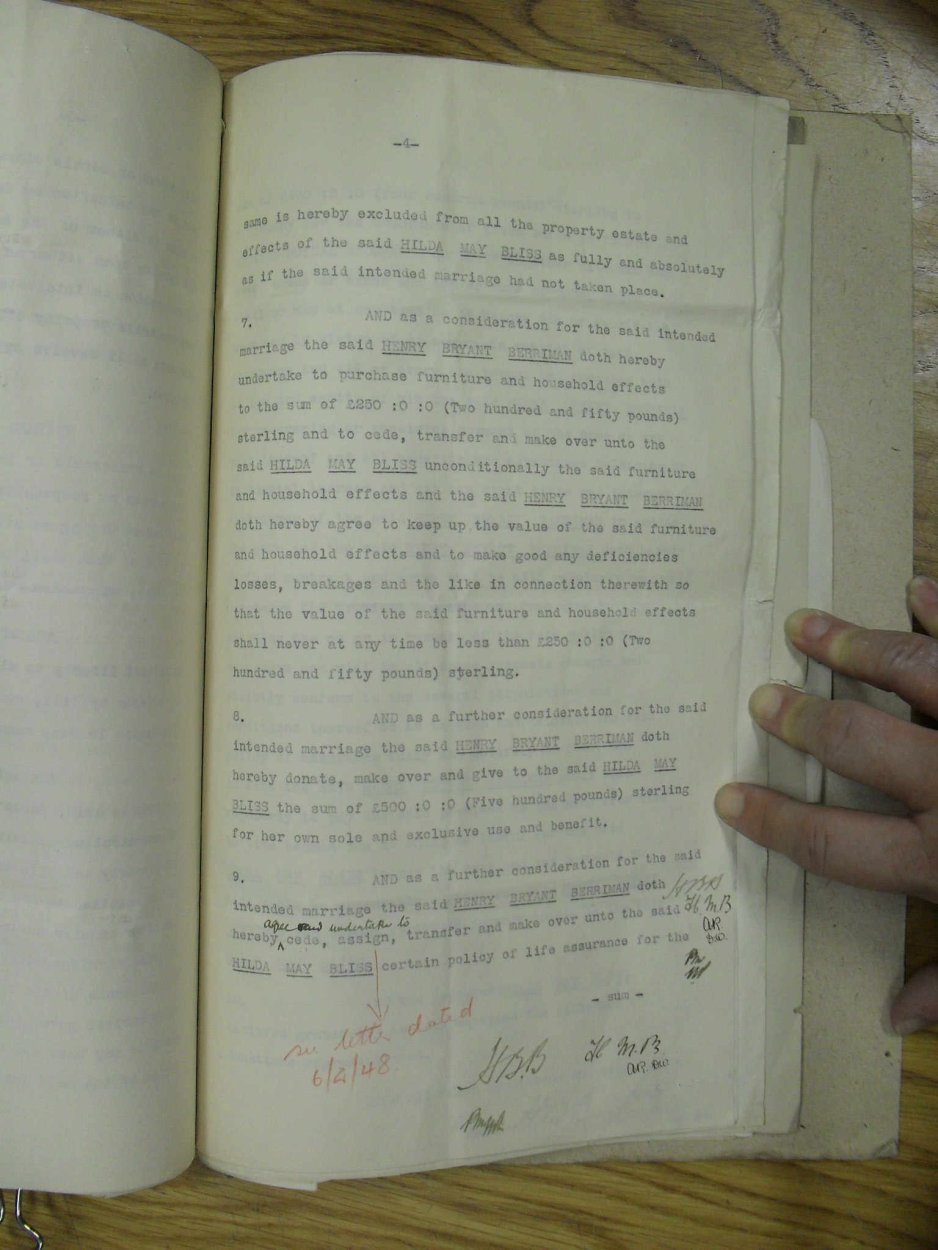 -4-
same is hereby excluded from all the property estate and
effects of the said HILDA MAY BLISS as fully and absolutely
as if the said intended marriage had not taken place.
7. AND as a consideration for the said intended
marriage the said HENRY BRYANT BERRIMAN doth hereby
undertake to purchase furniture and household effects
to the sum of £250 :0 :0 (Two hundred and fifty pounds)
sterling and to cede, transfer and make over unto the
said HILDA MAY BLISS unconditionally the said furniture
and household effects and the said HENRY BRYANT BERRIMAN
doth hereby agree to keep up the value of the said furniture
and household effects and to make good any deficiencies
losses, breakages and the like in connection therewith so
that the value of the said furniture and household effects
shall never at any time be less than £250 :0 :0 (Two
hundred and fifty pounds) sterling.
8. AND as a further consideration for the said
intended marriage the said HENRY BRYANT BERRIMAN doth
hereby donate, make over and give to the said HILDA MAY
BLISS the sum of £500 :0 :0 (Five hundred pounds) sterling
for her own sole and exclusive use and benefit.
9. AND as a further consideration for the said
intended marriage the said HENRY BRYANT BERRIMAN doth HBB
agree and undertake to
hereby cede, assign, transfer and make over unto the said H M B
HILDA MAY BLISS certain policy of life assurance for the
- sum -
see letter dated
6/2/48
HBB H M.B.